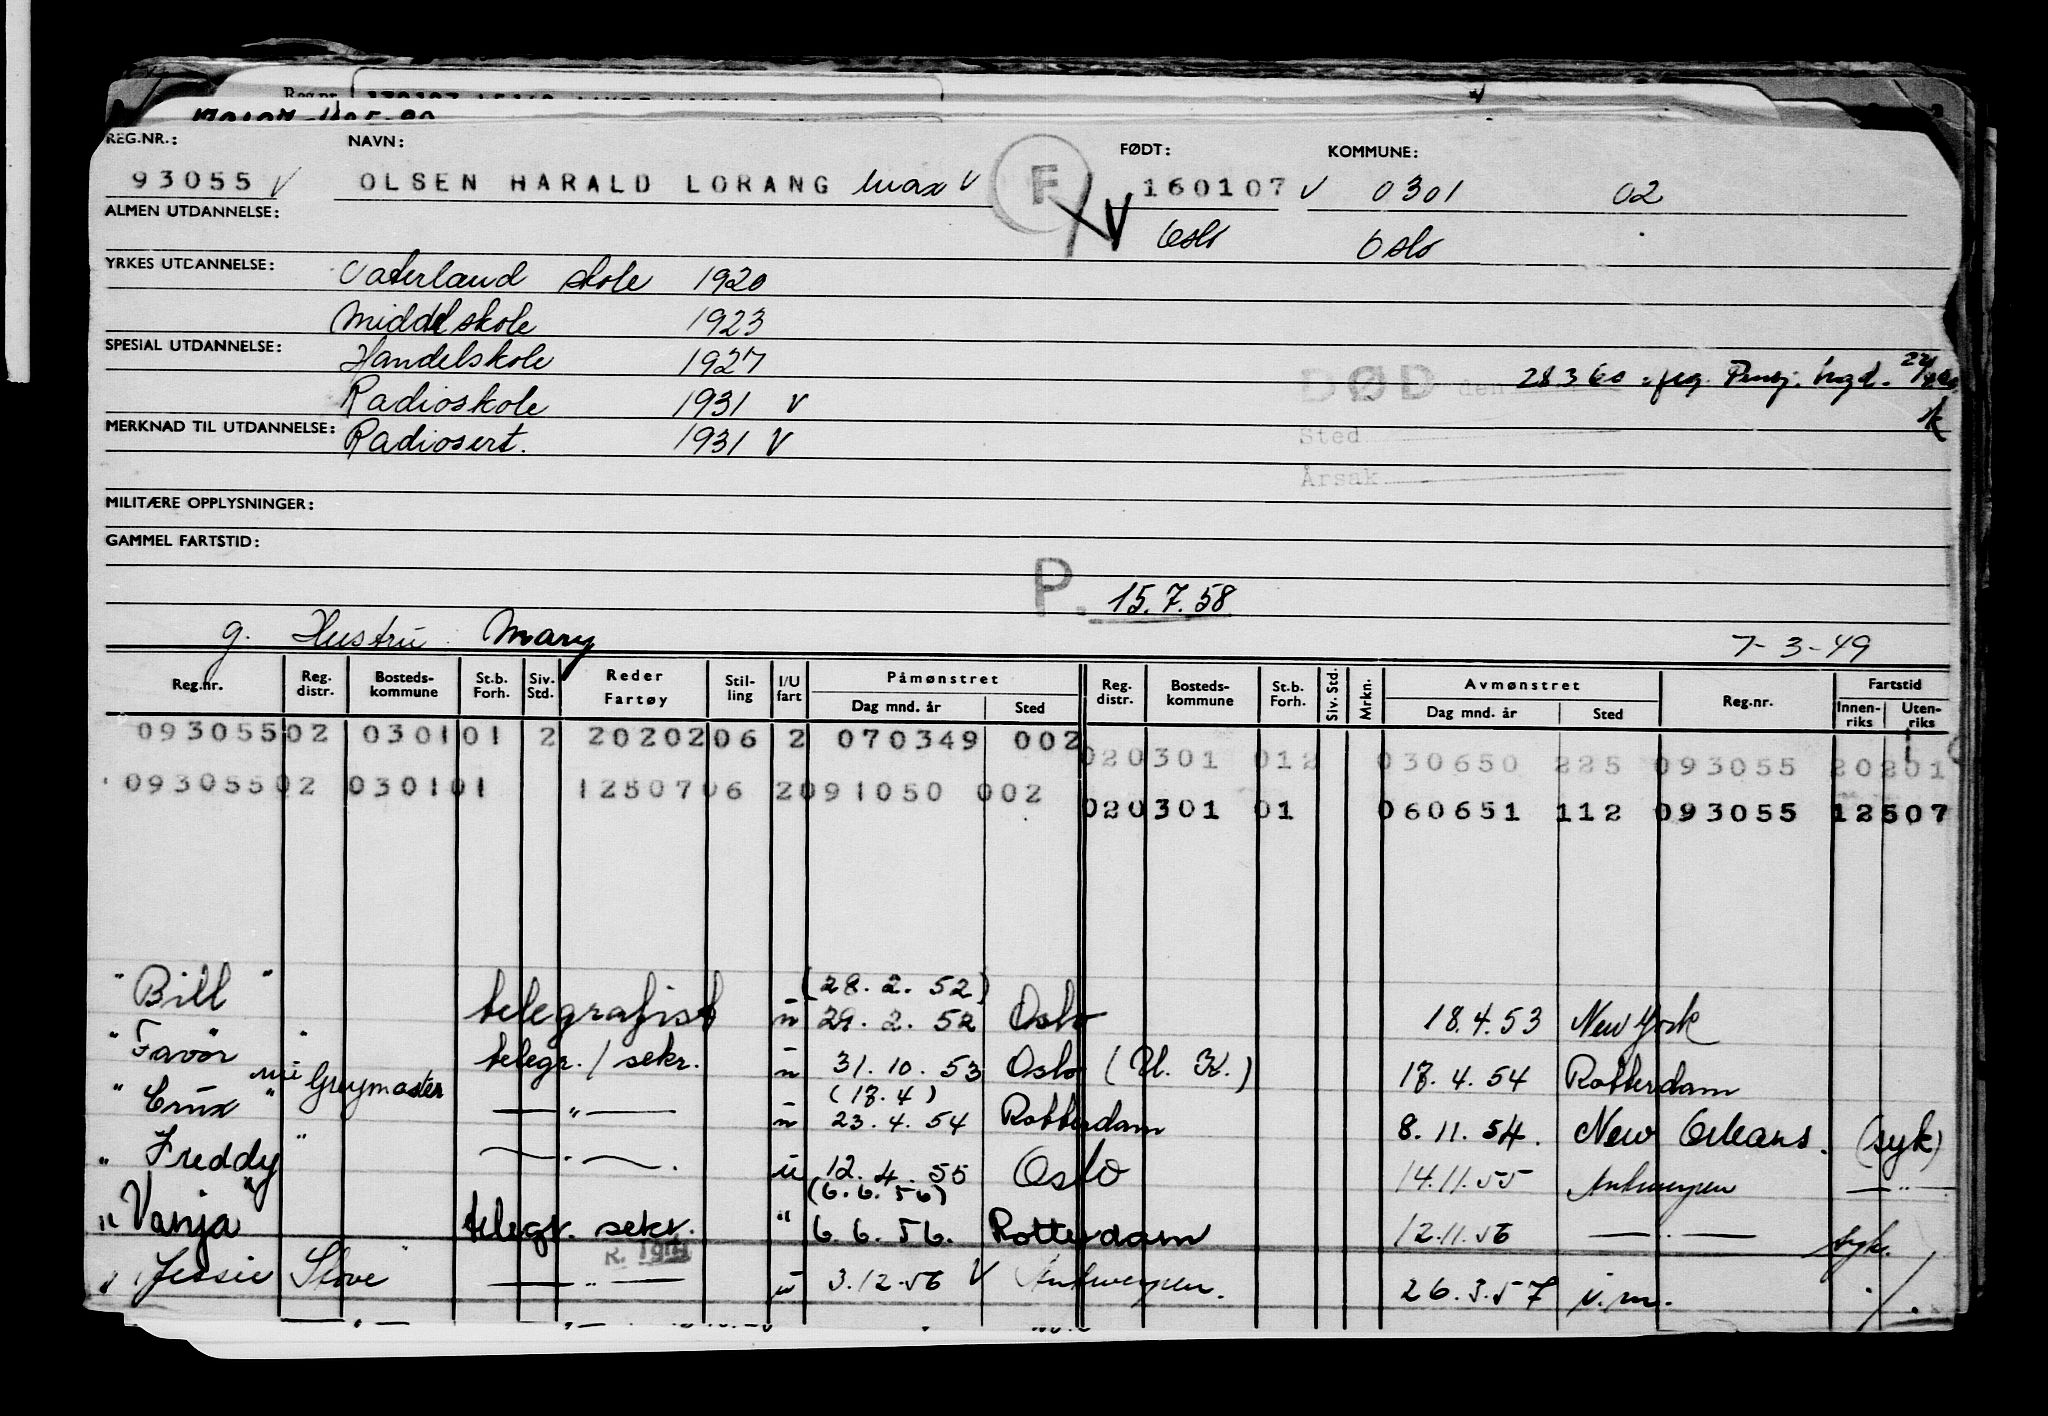 REG.NR.: NAVN: FØDT: KOMMUNE:
93055 V OLSEN HARALD LORANG Max V F 160107 V 0301 02
ALMEN UTDANNELSE: V Oslo Oslo
YRKES UTDANNELSE: Vaterland skole 1920
Middelskole 1923
SPESIAL UTDANNELSE: Handelskole 1927
DØD den 28360
Radioskole 1931 V
Sted
MERKNAD TIL UTDANNELSE: Radiosert. 1931 V
Årsak
MILITÆRE OPPLYSNINGER:
GAMMEL FARTSTID:
P. 15.7.58
g. Hustru Mary 7-3-49
Reg.nr. Reg. distr. Bosteds-kommune St.b. Forh. Siv. Std. Reder Fartøy Stil-ling I/U fart Påmønstret Dag mnd. år Sted Reg. distr. Bosteds-kommune St.b. Forh. Siv. Std. Mrkn. Avmønstret Dag mnd. år Sted Reg.nr. Fartstid Innen-riks Uten-riks
093055 02 0301 01 2 20202 06 2 070349 002
02 0301 012 030650 225 093055 20201
093055 02 0301 01 12507 06 2 091050 002
02 0301 01 060651 112 093055 12507
(28.2.52)
"Bill" telegrafist u 29.2.52 Oslo 18.4.53 New York
"Favör" telegr./sekr. u 31.10.53 Oslo (Ul. K.) 18.4.54 Rotterdam
(18.4)
"Crux" Greymaster —"— u 23.4.54 Rotterdam 8.11.54. New Orleans. (syk)
"Freddy" —"— u 12.4.55 Oslo 14.11.55 Antwerpen —"—
(6.6.56)
"Vanja" telegr. sekr. " 6.6.56. Rotterdam 12.11.56 —"— syk.
"Jessie Stove —"— u 3.12.56 V Antwerpen. 26.3.57